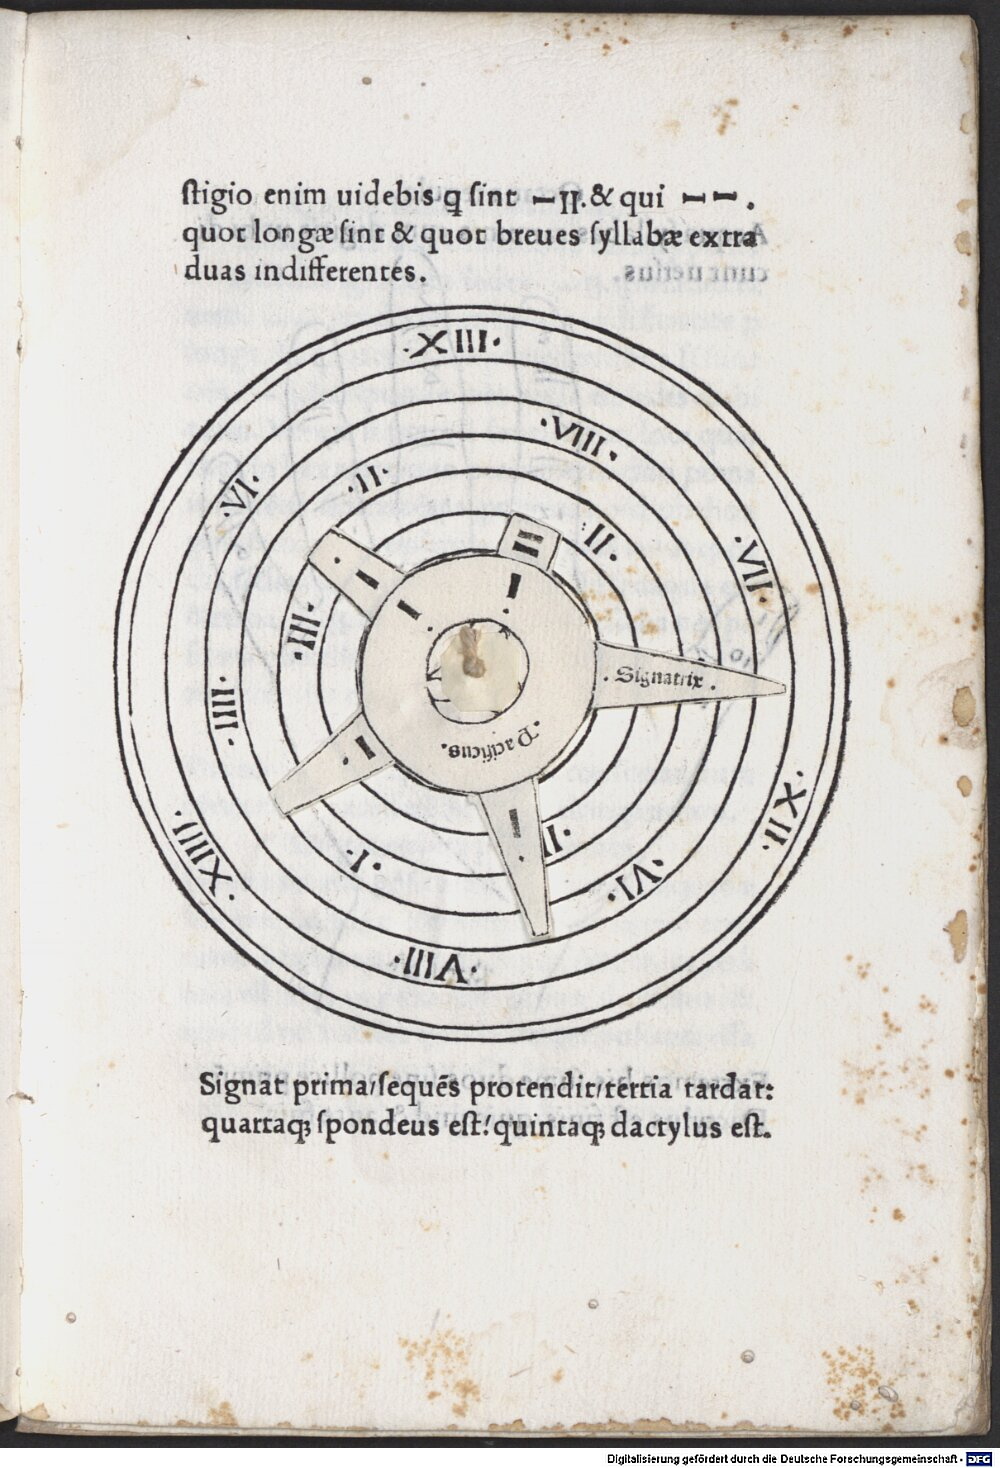 ſtigio enim uidebis ꝙ ſint –II. & qui – – .
quot longæ ſint & quot breues ſyllabæ extra
duas indifferentes.
·XIII·
·VIII·
·II·
·VI·
·II·
·VII·
·III·
·IIII·
·Signatrix·
·Pacificus·
·XII·
·XIIII·
·I·
·II·
·VI·
·VIII·
Signat prima/ſequēs protendit/tertia tardat:
quartaqꝫ ſpondeus eſt: quintaqꝫ dactylus eſt.
Digitalisierung gefördert durch die Deutsche Forschungsgemeinschaft - DFG